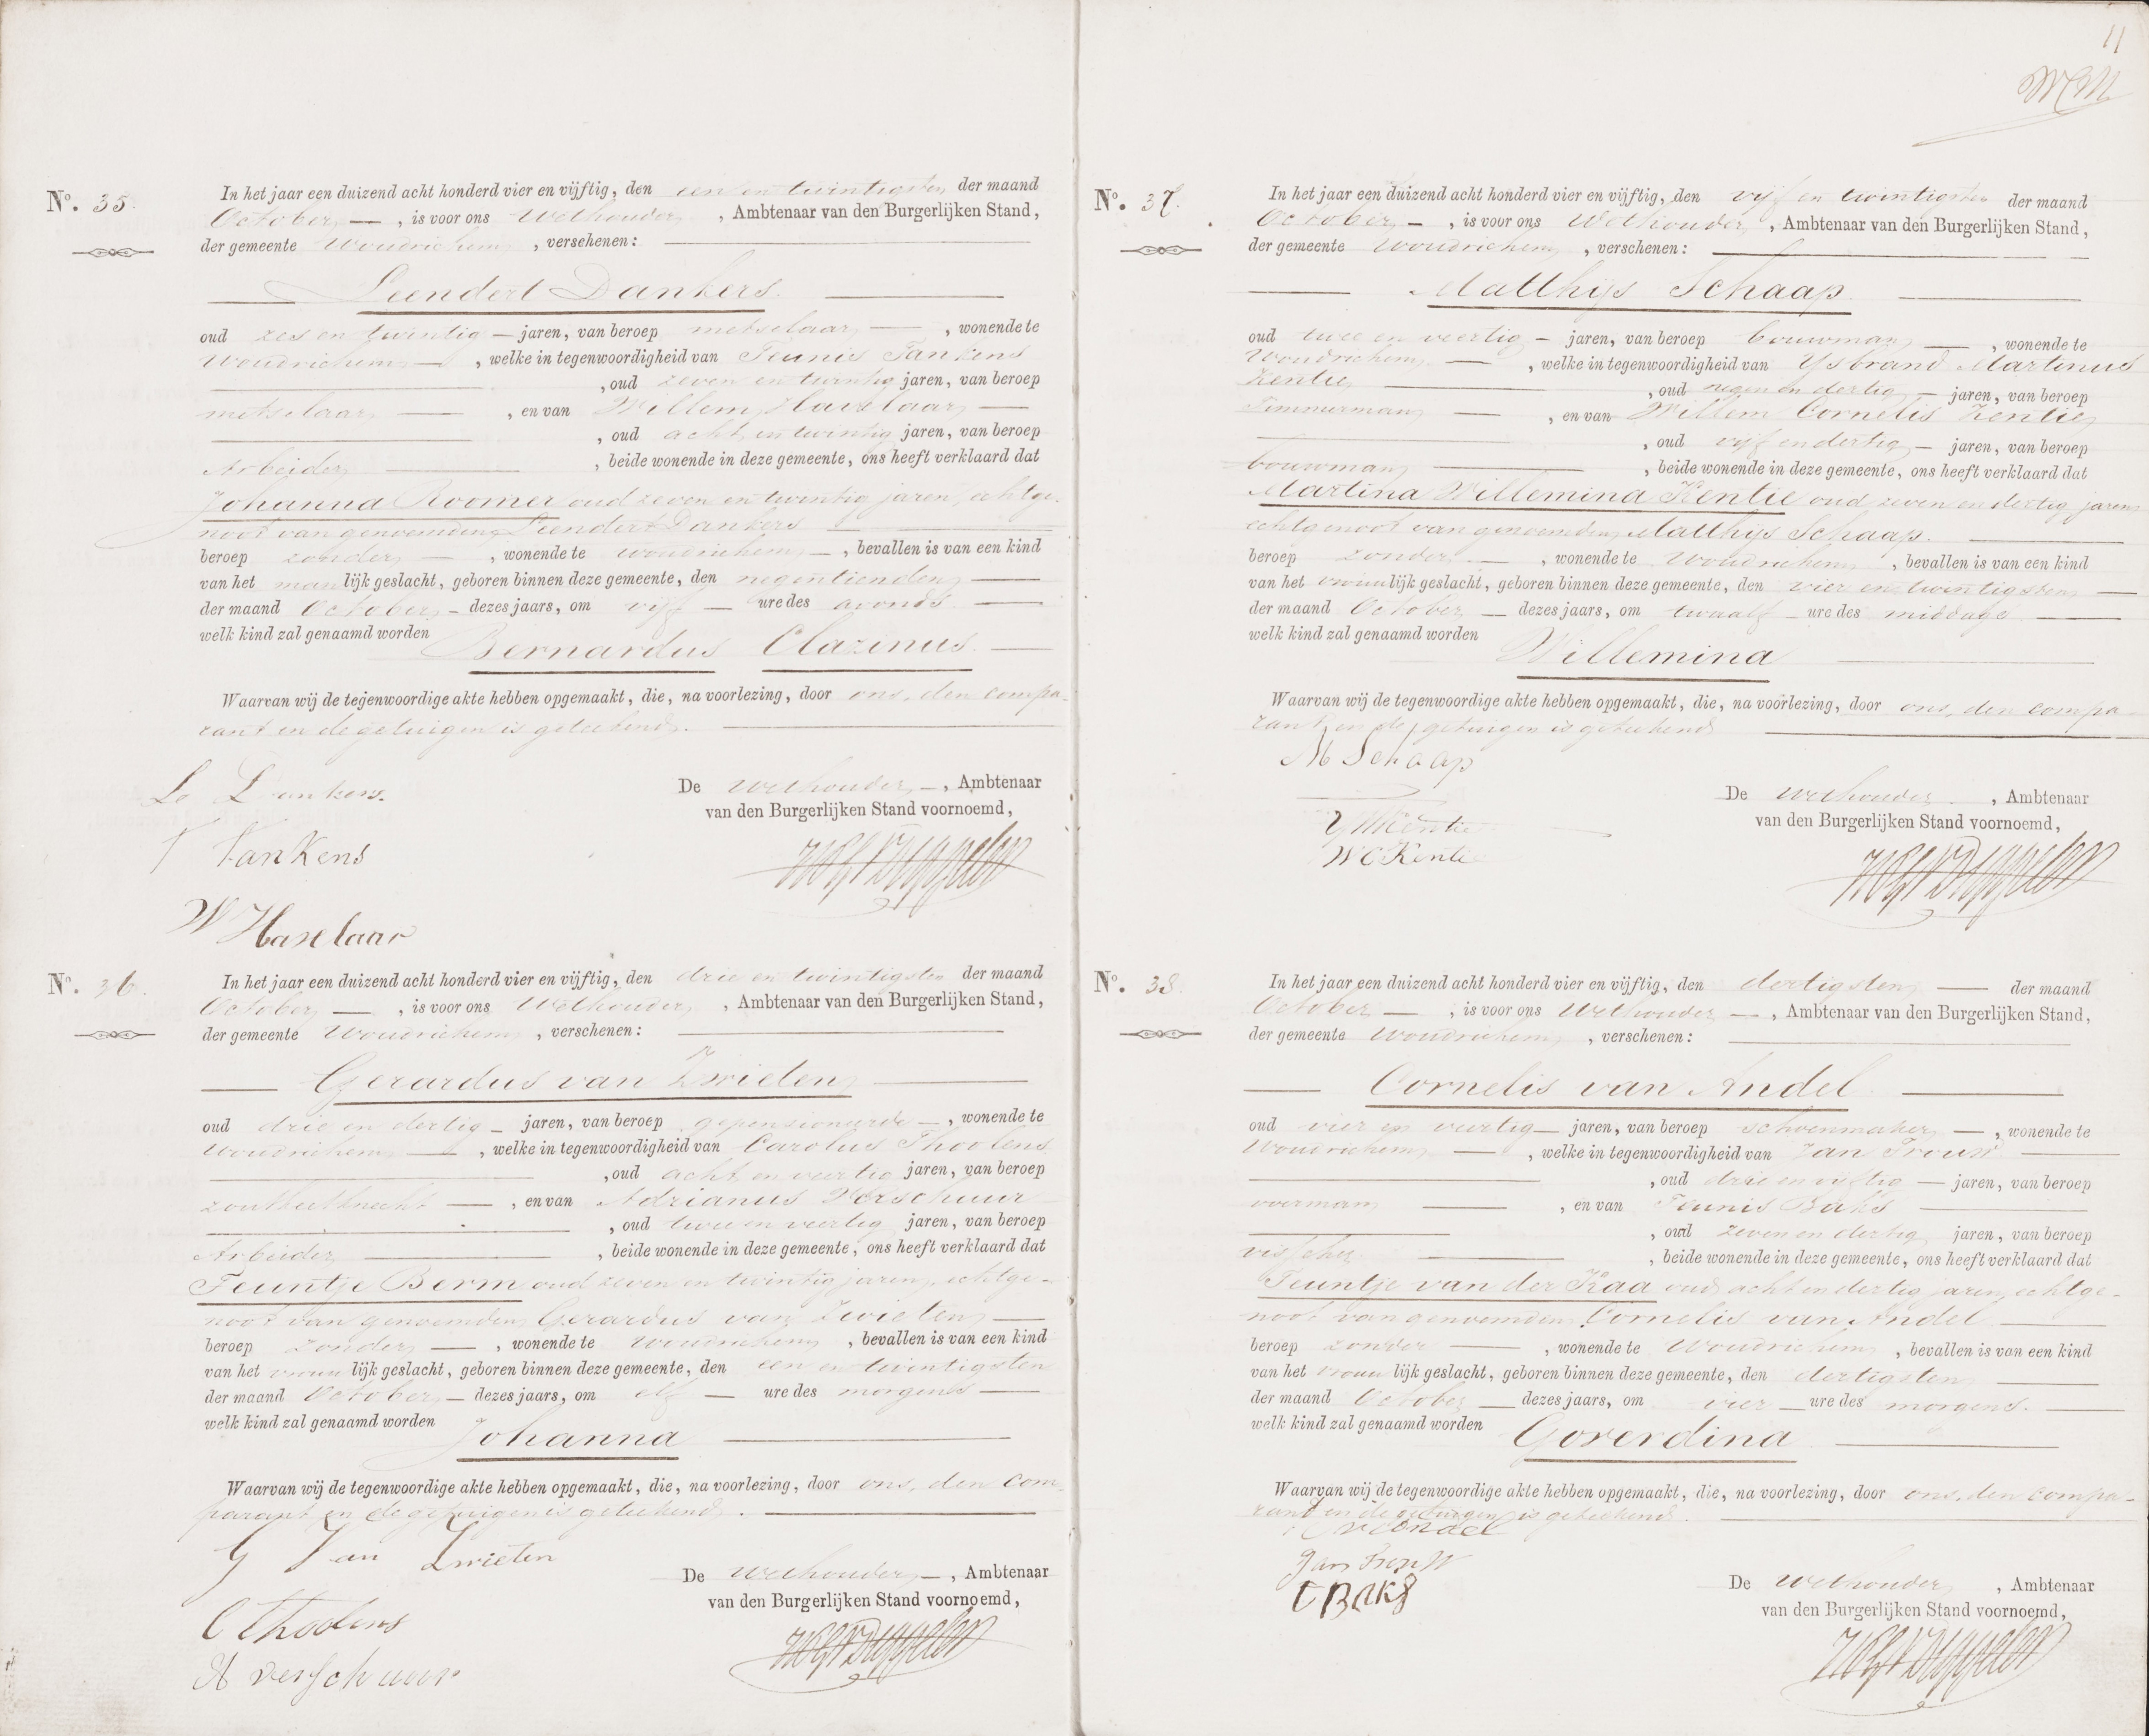 No. 35.
In het jaar een duizend acht honderd vier en vijftig, den een en twintigsten der maand
October — , is voor ons Wethouder , Ambtenaar van den Burgerlijken Stand,
der gemeente Woudrichem , verschenen:
Leendert Dankers.
oud zes en twintig — jaren, van beroep metselaar — , wonende te
Woudrichem — , welke in tegenwoordigheid van Teunis Tankens
, oud zeven en twintig jaren, van beroep
metselaar — , en van Willem Havelaar —
, oud acht en twintig jaren, van beroep
Arbeider , beide wonende in deze gemeente, ons heeft verklaard dat
Johanna Roomer oud zeven en twintig jaren, echtge-
noot van genoemden Leendert Dankers
beroep zonder — , wonende te Woudrichem — , bevallen is van een kind
van het manlijk geslacht, geboren binnen deze gemeente, den negentienden —
der maand October — dezes jaars, om vijf — ure des avonds —
welk kind zal genaamd worden Bernardus Clazinus. —
Waarvan wij de tegenwoordige akte hebben opgemaakt, die, na voorlezing, door ons, den compa-
rant en de getuigen is geteekend.
De Wethouder —, Ambtenaar
van den Burgerlijken Stand voornoemd,
Le Dankers.
T TanKens
W Havelaar
No. 36.
In het jaar een duizend acht honderd vier en vijftig, den drie en twintigsten der maand
October — , is voor ons Wethouder , Ambtenaar van den Burgerlijken Stand,
der gemeente Woudrichem , verschenen:
Gerardus van Zwieten
oud drie en dertig — jaren, van beroep gepensioneerde — , wonende te
Woudrichem — , welke in tegenwoordigheid van Carolus Thoolens
, oud acht en veertig jaren, van beroep
— , en van Adrianus Verschuur
, oud twee en veertig jaren, van beroep
Arbeider , beide wonende in deze gemeente, ons heeft verklaard dat
Teuntje Berm oud zeven en twintig jaren, echtge-
noot van genoemden Gerardus van Zwieten —
beroep zonder — , wonende te Woudrichem , bevallen is van een kind
van het vrouwlijk geslacht, geboren binnen deze gemeente, den een en twintigsten
der maand October — dezes jaars, om elf — ure des morgens —
welk kind zal genaamd worden Johanna
Waarvan wij de tegenwoordige akte hebben opgemaakt, die, na voorlezing, door ons, den com-
parant en de getuigen is geteekend.
G Van Zwieten
De Wethouder —, Ambtenaar
van den Burgerlijken Stand voornoemd,
C Thoolens
A verschuur
11
No. 37.
In het jaar een duizend acht honderd vier en vijftig, den vijf en twintigsten der maand
October — , is voor ons Wethouder , Ambtenaar van den Burgerlijken Stand,
der gemeente Woudrichem , verschenen:
Matthijs Schaap.
oud twee en veertig — jaren, van beroep bouwman — , wonende te
Woudrichem — , welke in tegenwoordigheid van Ysbrand Martinus
Kentie , oud negen en dertig — jaren, van beroep
Timmerman — , en van Willem Cornelis Kentie
, oud vijf en dertig — jaren, van beroep
bouwman , beide wonende in deze gemeente, ons heeft verklaard dat
Martina Willemina Kentie oud zeven en dertig jaren
echtgenoot van genoemden Matthijs Schaap.
beroep zonder — , wonende te Woudrichem , bevallen is van een kind
van het vrouwlijk geslacht, geboren binnen deze gemeente, den vier en twintigsten —
der maand October — dezes jaars, om twaalf — ure des middags —
welk kind zal genaamd worden Willemina
Waarvan wij de tegenwoordige akte hebben opgemaakt, die, na voorlezing, door ons, den compa-
rant en de getuigen is geteekend
M Schaap
De Wethouder , Ambtenaar
van den Burgerlijken Stand voornoemd,
YMKentie
WCKentie
No. 38.
In het jaar een duizend acht honderd vier en vijftig, den dertigsten — der maand
October — , is voor ons Wethouder — , Ambtenaar van den Burgerlijken Stand,
der gemeente Woudrichem , verschenen:
Cornelis van Andel
oud vier en veertig — jaren, van beroep schoenmaker — , wonende te
Woudrichem — , welke in tegenwoordigheid van Jan Trouw
, oud drie en vijftig — jaren, van beroep
voerman — , en van Teunis Baks
, oud zeven en dertig jaren, van beroep
visscher , beide wonende in deze gemeente, ons heeft verklaard dat
Teuntje van der Kaa oud acht en dertig jaren, echtge-
noot van genoemden Cornelis van Andel
beroep zonder — , wonende te Woudrichem , bevallen is van een kind
van het vrouwlijk geslacht, geboren binnen deze gemeente, den dertigsten
der maand October — dezes jaars, om vier — ure des morgens. —
welk kind zal genaamd worden Goverdina
Waarvan wij de tegenwoordige akte hebben opgemaakt, die, na voorlezing, door ons, den compa-
rant en de getuigen is geteekend.
Jan Trouw
T BAKS
De Wethouder , Ambtenaar
van den Burgerlijken Stand voornoemd,